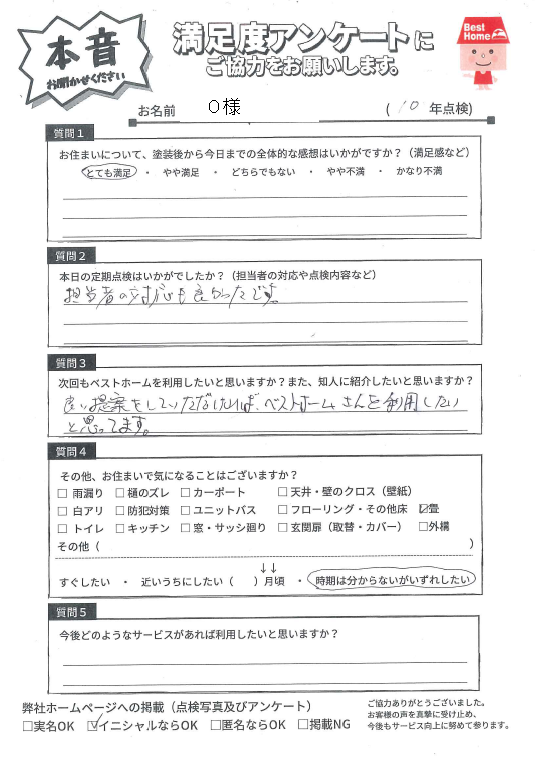 本音
お聞かせください
満足度アンケートに
ご協力をお願いします。
Best
Home
お名前 O様 ( 10 年点検)
質問1
お住まいについて、塗装後から今日までの全体的な感想はいかがですか？（満足感など）
とても満足 ・ やや満足 ・ どちらでもない ・ やや不満 ・ かなり不満
質問2
本日の定期点検はいかがでしたか？（担当者の対応や点検内容など）
担当者の対応も良かったです。
質問3
次回もベストホームを利用したいと思いますか？また、知人に紹介したいと思いますか？
良い提案をしていただければ、ベストホームさんを利用したい
と思ってます。
質問4
その他、お住まいで気になることはございますか？
□ 雨漏り □ 樋のズレ □ カーポート □ 天井・壁のクロス（壁紙）
□ 白アリ □ 防犯対策 □ ユニットバス □ フローリング・その他床 ☑畳
□ トイレ □ キッチン □ 窓・サッシ廻り □ 玄関扉（取替・カバー） □外構
その他（ ）
↓↓
すぐしたい ・ 近いうちにしたい（ ）月頃 ・ 時期は分からないがいずれしたい
質問5
今後どのようなサービスがあれば利用したいと思いますか？
弊社ホームページへの掲載（点検写真及びアンケート）
□実名OK ☑イニシャルならOK □匿名ならOK □掲載NG
ご協力ありがとうございました。
お客様の声を真摯に受け止め、
今後もサービス向上に努めて参ります。